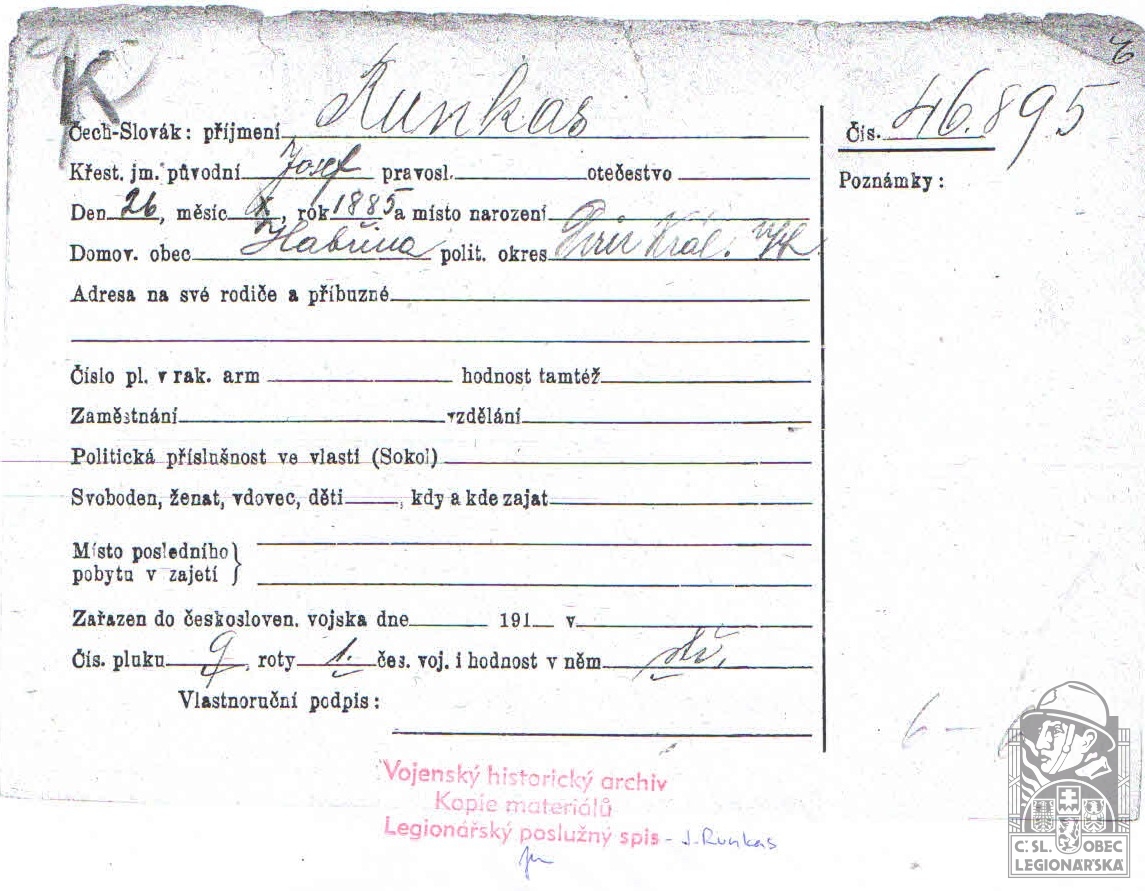 K
6
Čech-Slovák: příjmení Runkas
Čís. 46.895
Křest. jm. původní Josef pravosl. otečestvo
Poznámky:
Den 26, měsíc X, rok 1885 a místo narození
Domov. obec Habřina polit. okres Dvůr Král.
Adresa na své rodiče a příbuzné
Číslo pl. v rak. arm hodnost tamtéž
Zaměstnání vzdělání
Politická příslušnost ve vlasti (Sokol)
Svoboden, ženat, vdovec, děti , kdy a kde zajat
Místo posledního
pobytu v zajetí }
Zařazen do českosloven. vojska dne 191 v
Čís. pluku 9, roty 1. čes. voj. i hodnost v něm stř.
Vlastnoruční podpis:
6 -
Vojenský historický archiv
Kopie materiálů
Legionářský poslužný spis - J. Runkas
Č:SL. OBEC
LEGIONÁŘSKÁ